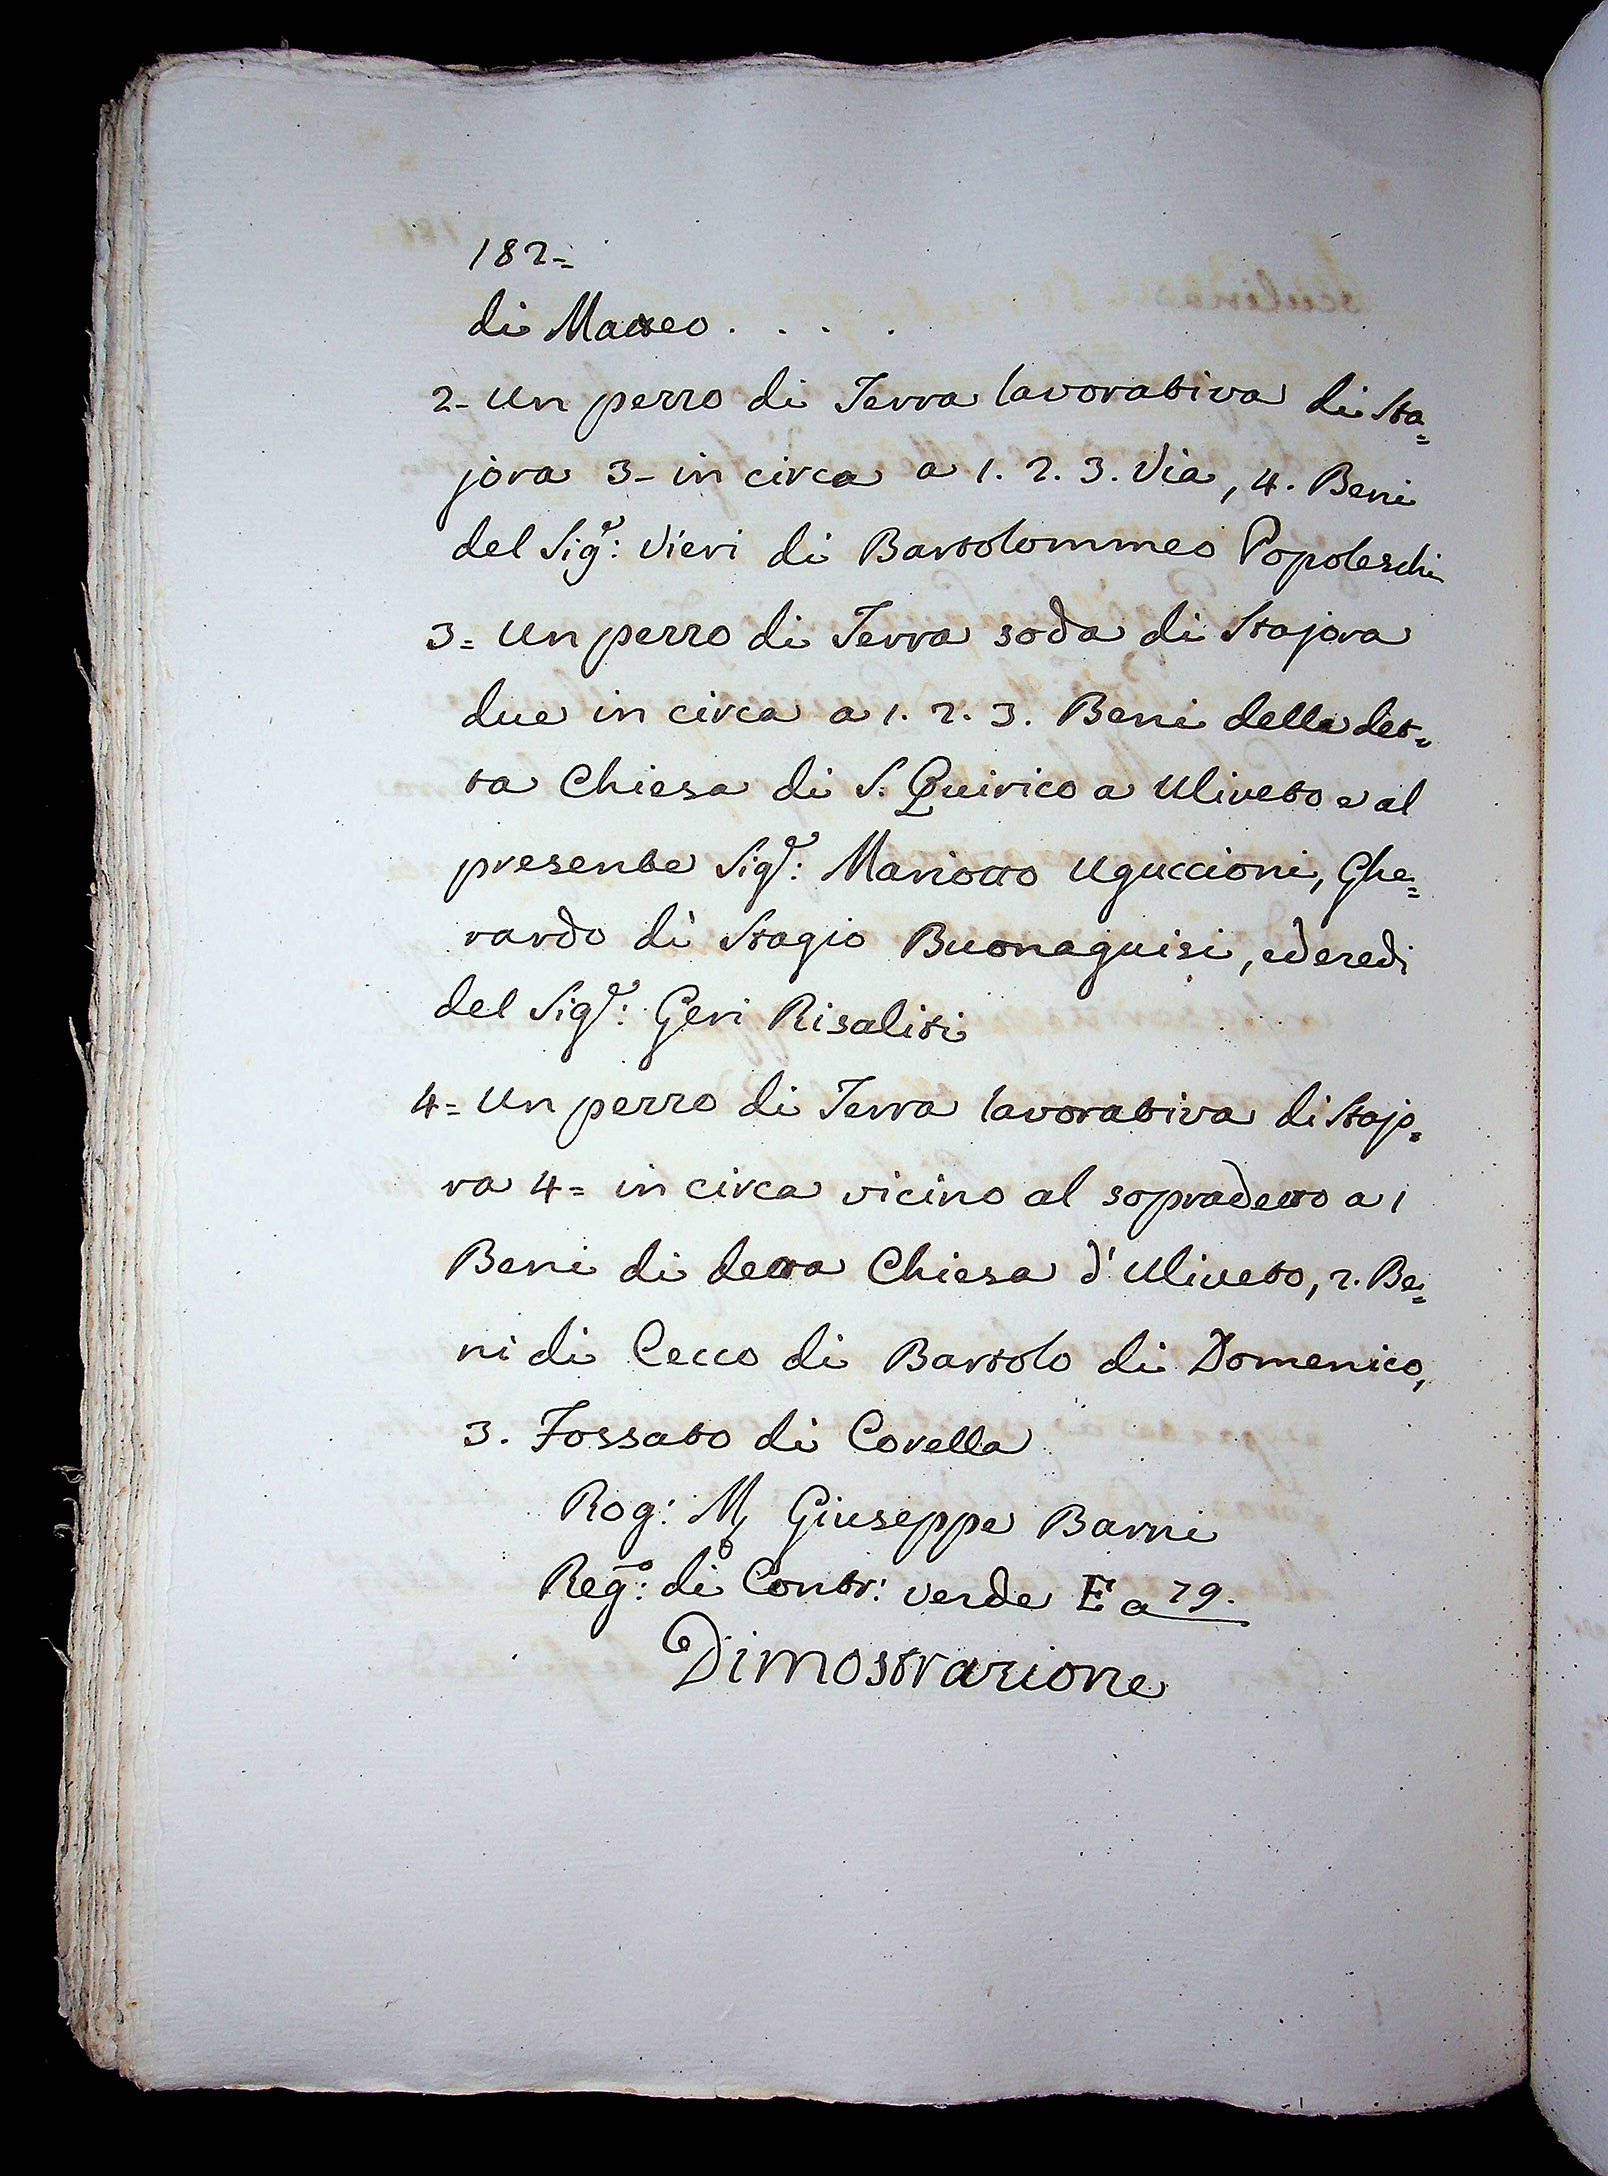 182=
di Matteo . . . .
2- Un pezzo di Terra lavorativa di Sta=
jora 3- in circa a 1. 2. 3. Via, 4. Beni
del Sig.r: Vieri di Bartolommeo Popoleschi
3= Un pezzo di Terra soda di Stajora
due in circa a 1. 2. 3. Beni della det=
ta Chiesa di S. Quirico a Uliveto e al
presente Sig.r: Mariotto Uguccioni, Ghe=
rardo di Stagio Buonaguisi, ed eredi
del Sig.r: Geri Risaliti
4= Un pezzo di Terra lavorativa di Stajo=
ra 4= in circa vicino al sopradetto a 1
Beni di detta Chiesa d'Uliveto, 2. Be=
ni di Cecco di Bartolo di Domenico,
3. Fossato di Corella
Rog: Giuseppe Barni
Reg.o: di Contr: verde E a 79.
Dimostrazione